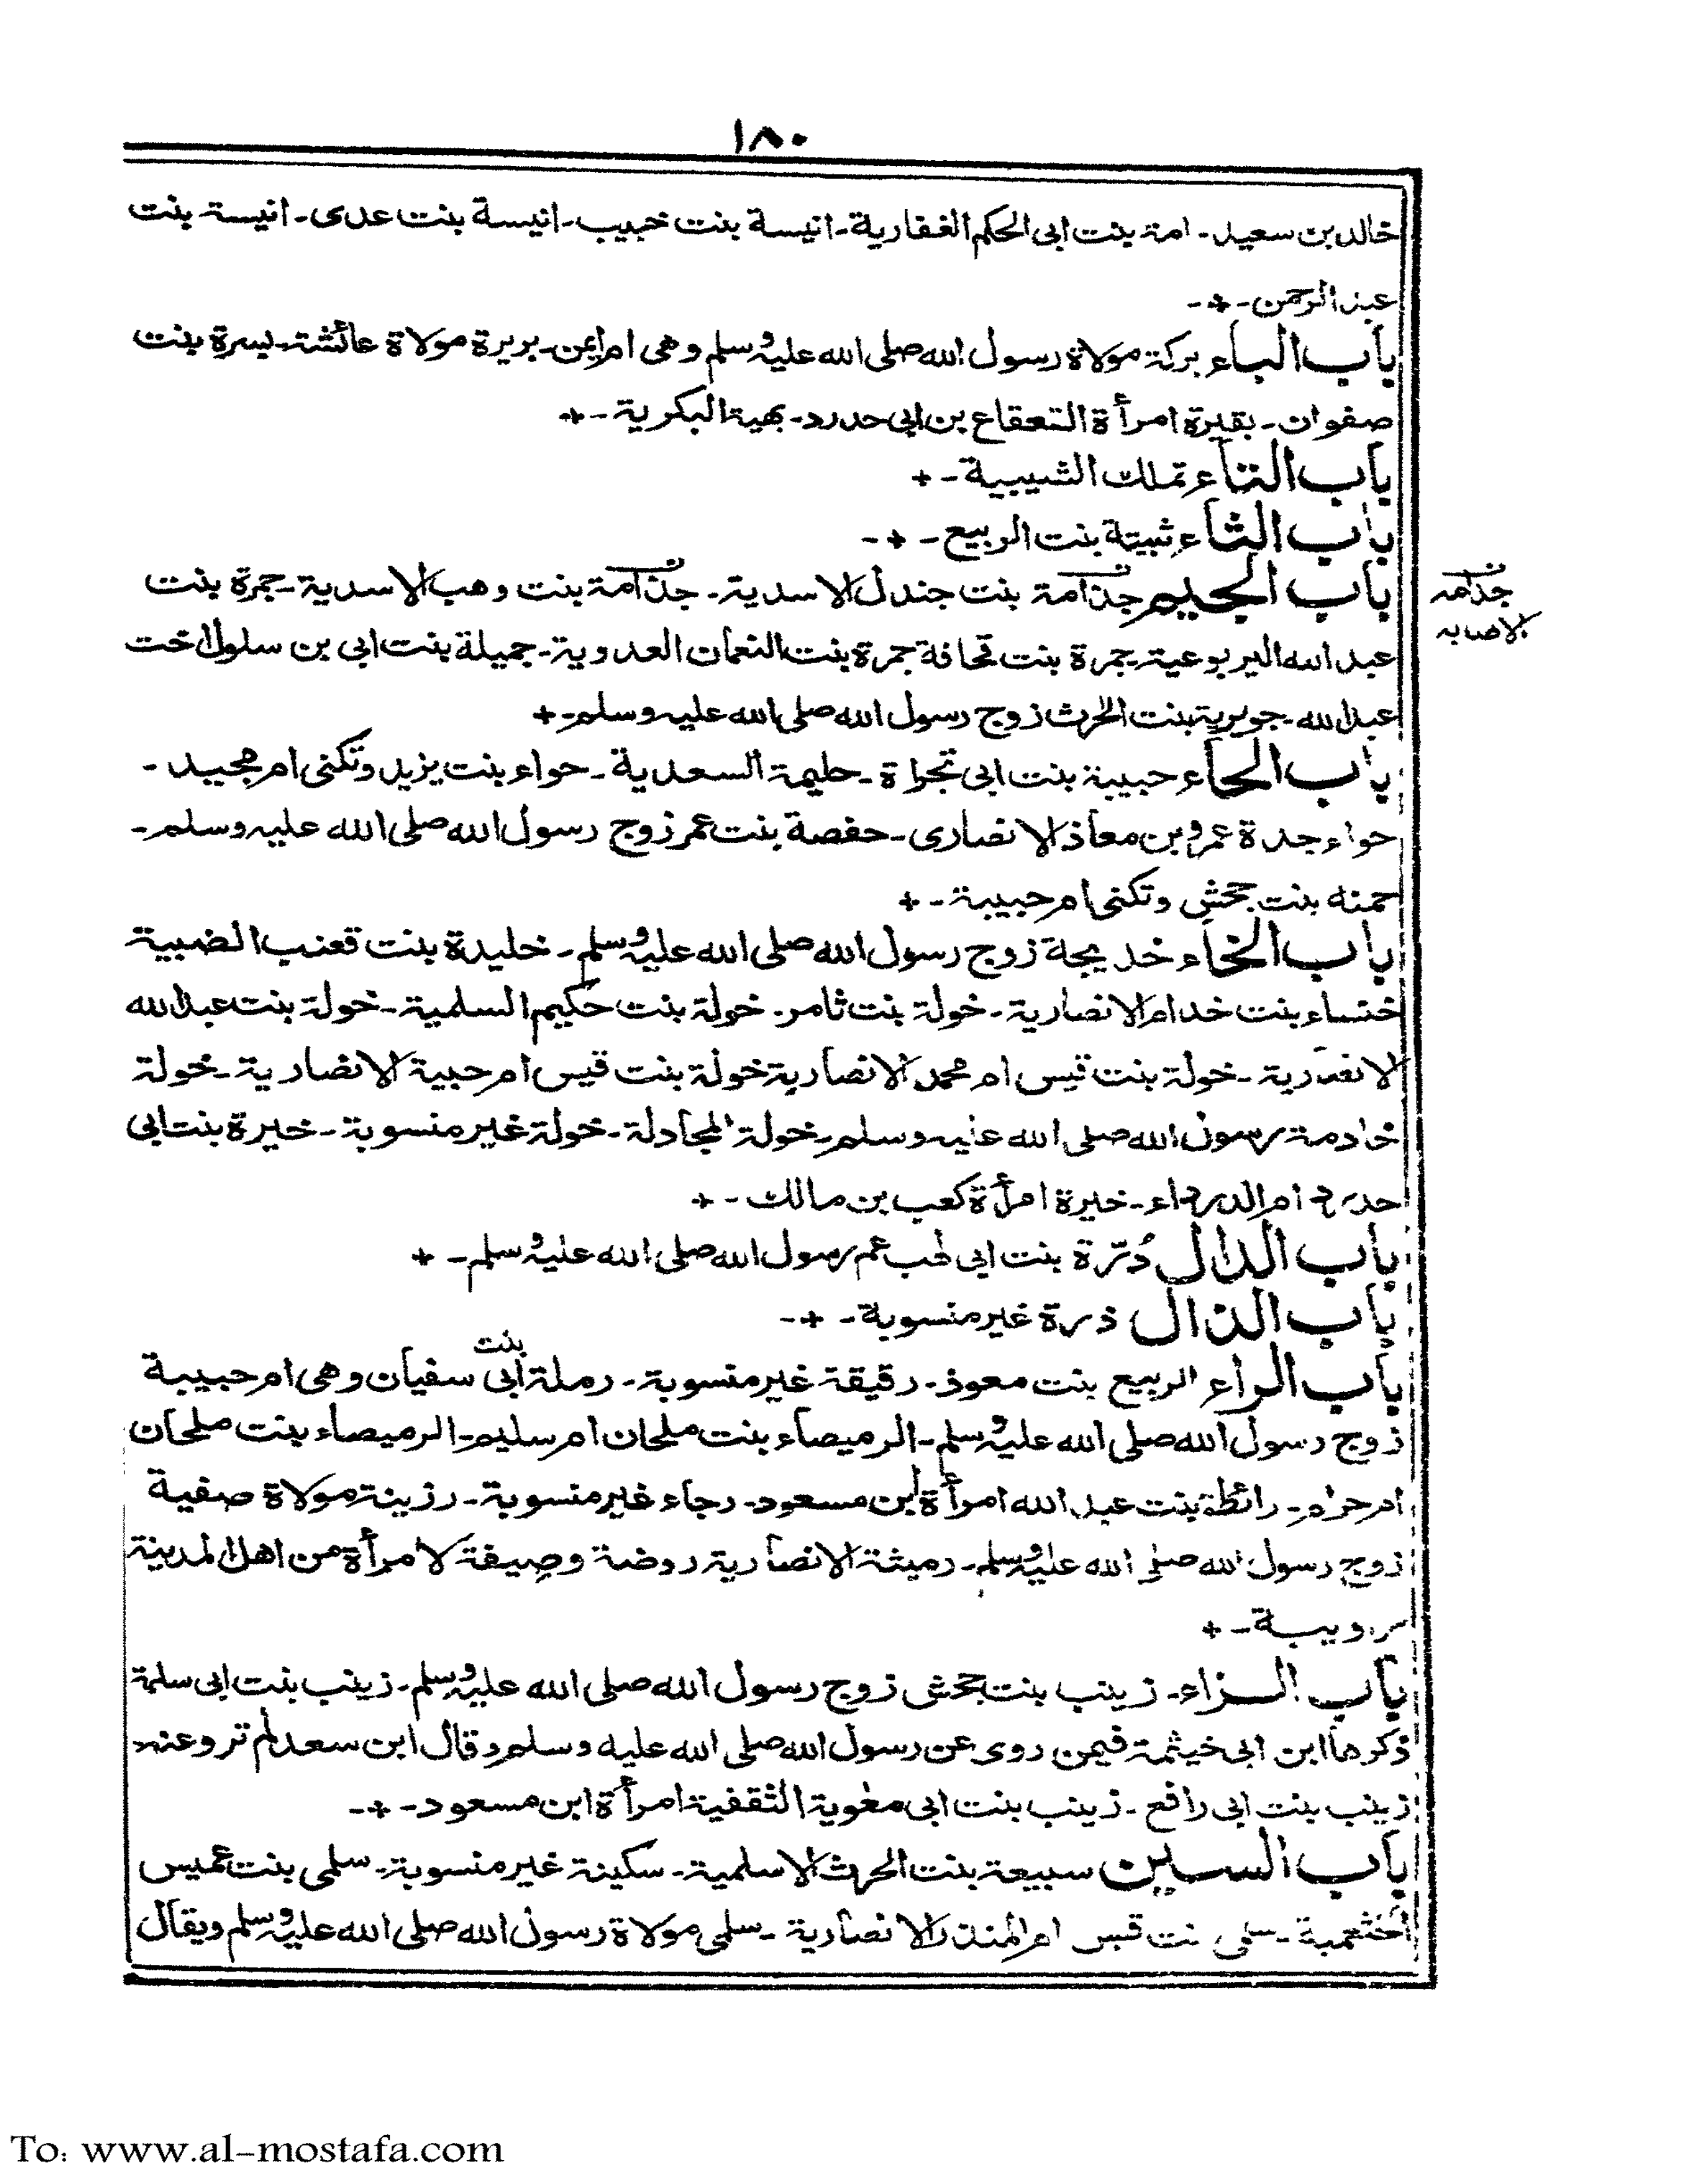 ١٨٠
خالد بن سعيد - امة بنت ابى الحكم الغفارية - انيسة بنت خبيب - انيسة بنت عدى - انيسة بنت
عبد الرحمن - + -
باب الباء بركة مولاة رسول الله صلى الله عليه وسلم وهى ام ايمن - بريرة مولاة عائشة - بسرة بنت
صفوان - بقيرة امرأة القعقاع بن ابى حدرد - بهية البكرية - +
باب التاء تملك الشيبية - +
باب الثاء ثبيتة بنت الربيع - + -
باب الجيم جذامة بنت جندل الاسدية - جذامة بنت وهب الاسدية - جمرة بنت
جذامة
الاصابه
عبد الله اليربوعية - جمرة بنت قحافة جمرة بنت النعمان العدوية - جميلة بنت ابى بن سلول اخت
عبد الله - جويرية بنت الحرث زوج رسول الله صلى الله عليه وسلم - +
باب الحاء حبيبة بنت ابى تجراة - حليمة السعدية - حواء بنت يزيد وتكنى ام مجيد -
حواء جدة عمرو بن معاذ الانصارى - حفصة بنت عمر زوج رسول الله صلى الله عليه وسلم -
حمنه بنت جحش وتكنى ام حبيبة - +
باب الخاء خديجة زوج رسول الله صلى الله عليه وسلم - خليدة بنت قعنب الضبية
خنساء بنت خدام الانصارية - خولة بنت ثامر - خولة بنت حكيم السلمية - خولة بنت عبد الله
الانصارية - خولة بنت قيس ام محمد الانصارية خولة بنت قيس ام حبيبة الانصارية - خولة
خادمة رسول الله صلى الله عليه وسلم - خولة المجادلة - خولة غير منسوبة - خيرة بنت ابى
حدرد ام الدرداء - خيرة امرأة كعب بن مالك - +
باب الدال دُرّة بنت ابى لهب عم رسول الله صلى الله عليه وسلم - +
باب الذال ذرة غير منسوبة - + -
باب الراء الربيع بنت معوذ - رقيقة غير منسوبة - رملة بنت ابى سفيان وهى ام حبيبة
زوج رسول الله صلى الله عليه وسلم - الرميصاء بنت ملحان ام سليم - الرميصاء بنت ملحان
ام حرام - رائطة بنت عبد الله امرأة ابن مسعود - رجاء غير منسوبة - رزينة مولاة صفية
زوج رسول الله صلى الله عليه وسلم - رميثة الانصارية روضة وصيفة لامرأة من اهل المدينة
رويبة - +
باب الزاء - زينب بنت جحش زوج رسول الله صلى الله عليه وسلم - زينب بنت ابى سلمة
ذكرها ابن ابى خيثمة فيمن روى عن رسول الله صلى الله عليه وسلم وقال ابن سعد لم تروعنه
زينب بنت ابى رافع - زينب بنت ابى معٰوية الثقفية امرأة ابن مسعود - + -
باب السين سبيعة بنت الحرث الاسلمية - سكينة غير منسوبة - سلمى بنت عميس
الخثعمية - سلمى بنت قيس ام المنذر الانصارية - سلمى مولاة رسول الله صلى الله عليه وسلم ويقال
To: www.al-mostafa.com